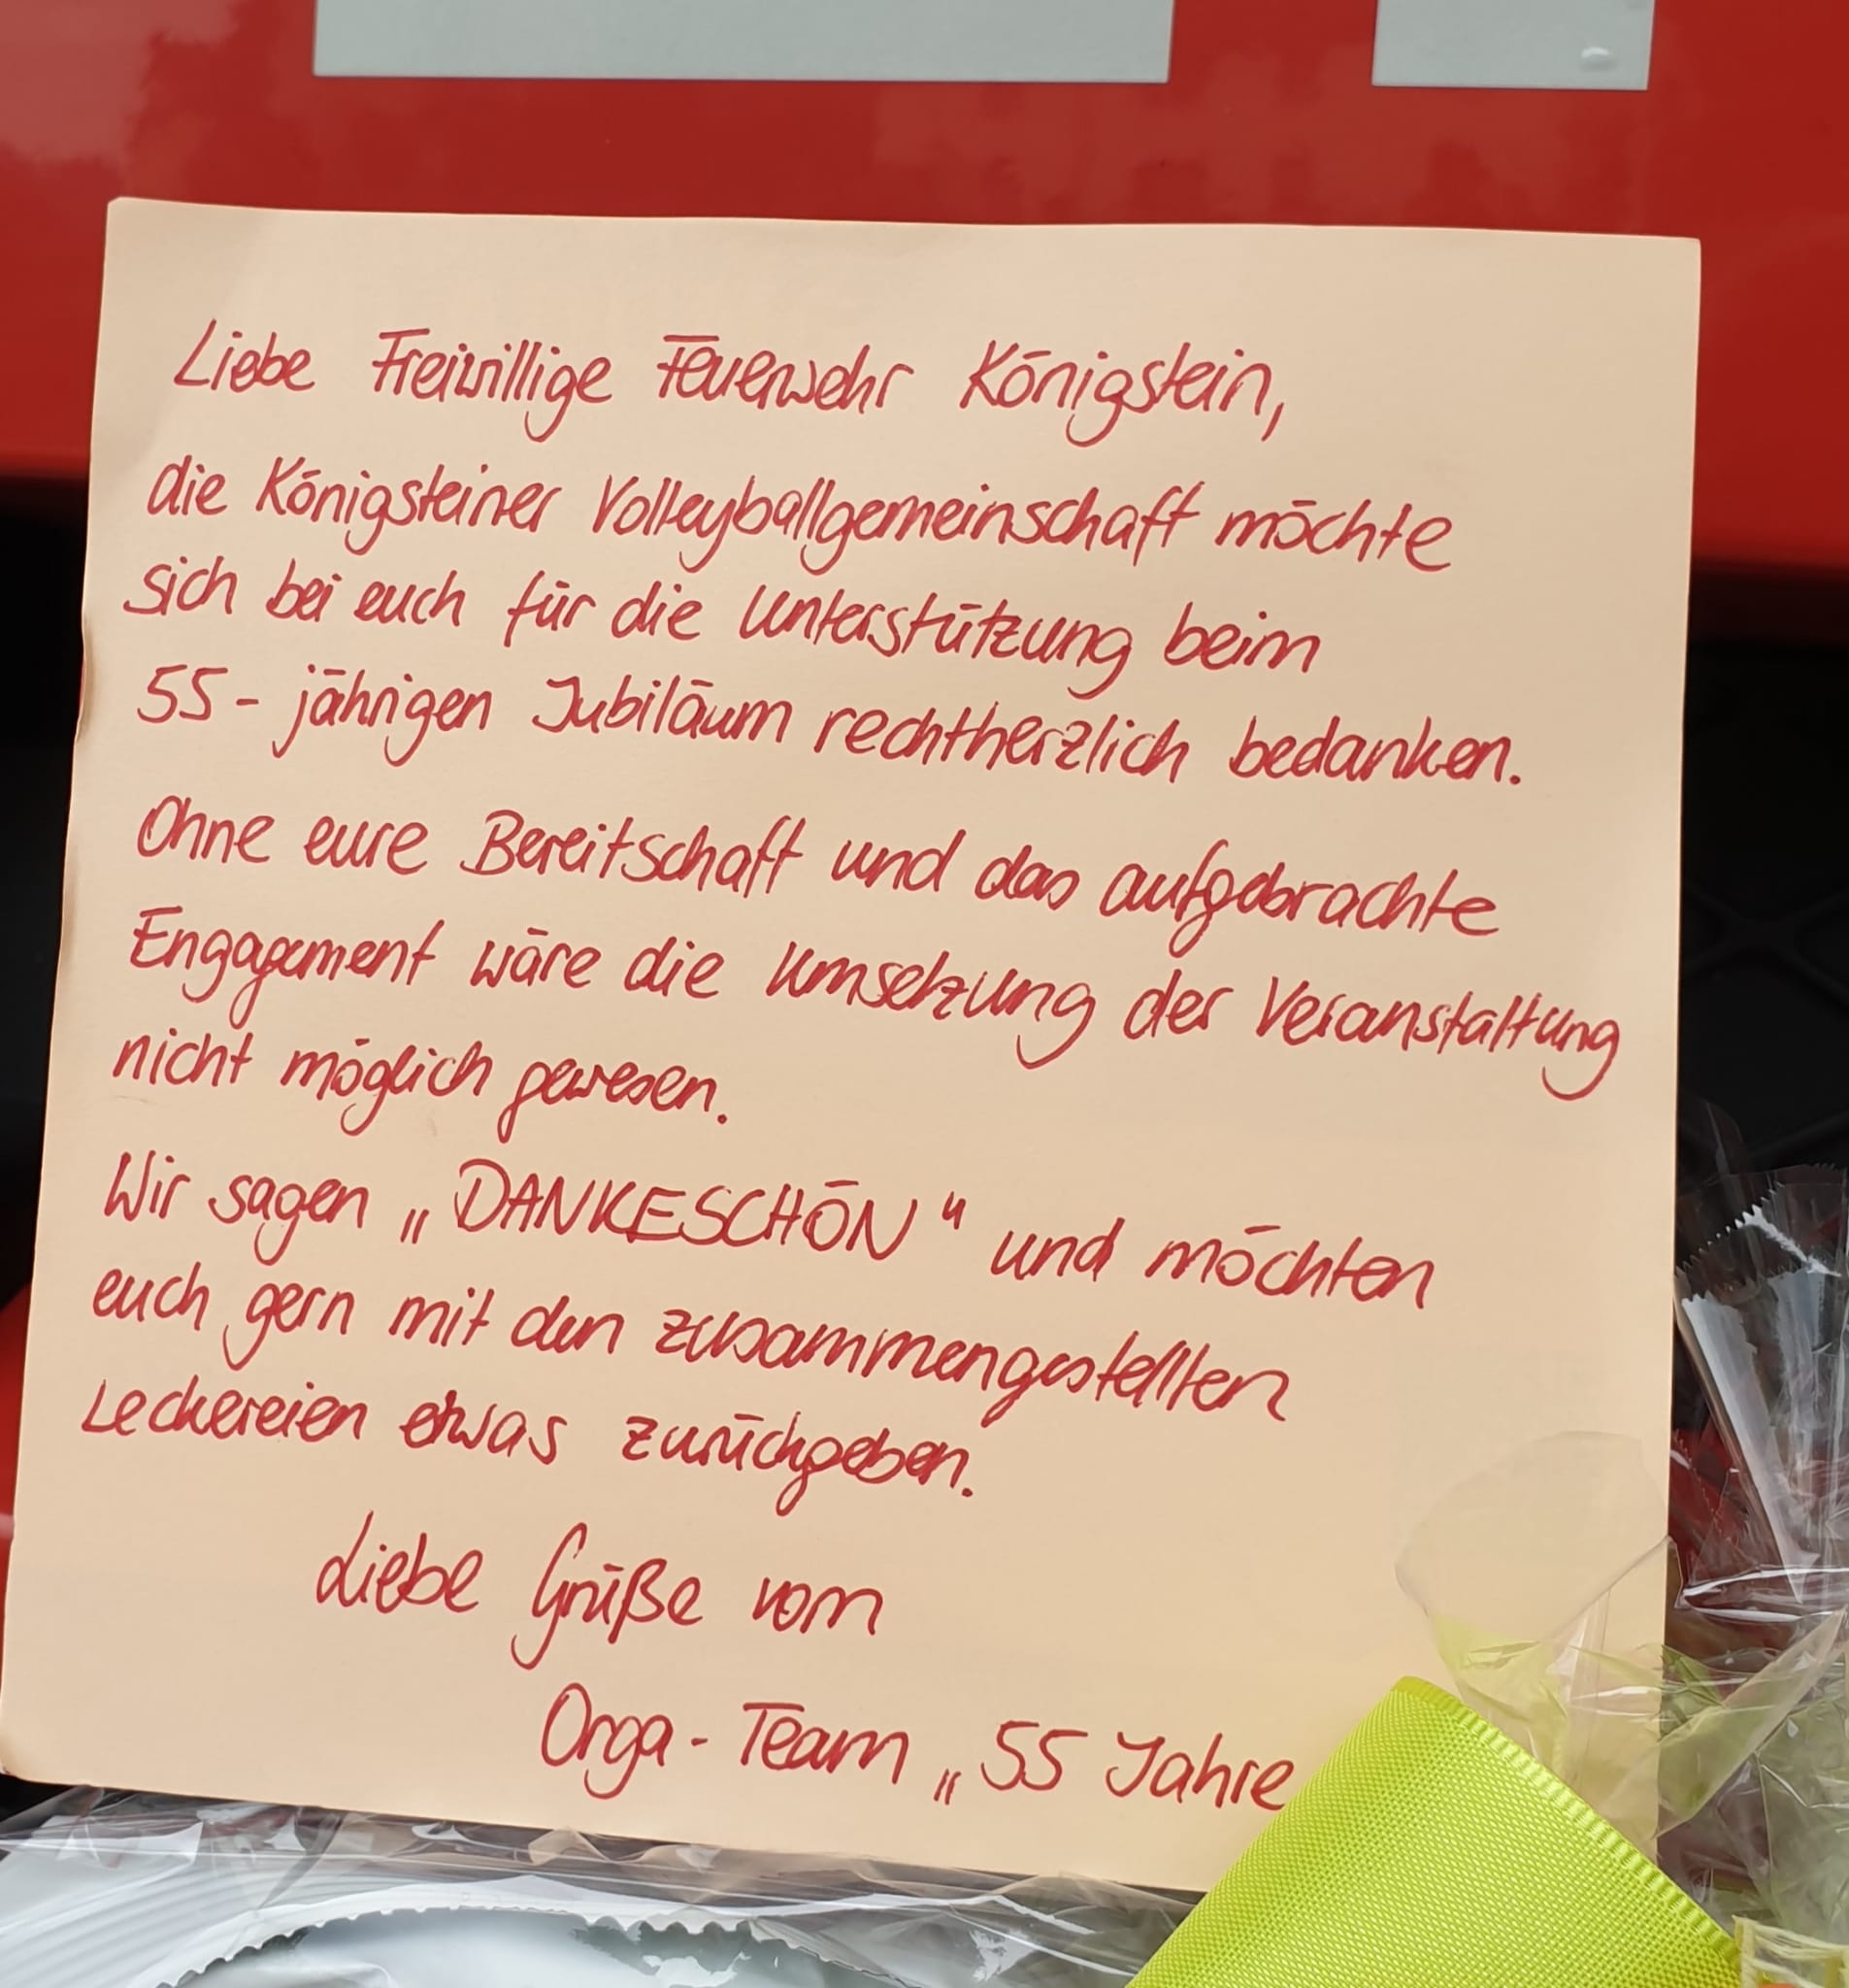 Liebe Freiwillige Feuerwehr Königstein,
die Königsteiner Volleyballgemeinschaft möchte
sich bei euch für die Unterstützung beim
55-jährigen Jubiläum rechtherzlich bedanken.
Ohne eure Bereitschaft und das aufgebrachte
Engagement wäre die Umsetzung der Veranstaltung
nicht möglich gewesen.
Wir sagen „DANKESCHÖN“ und möchten
euch gern mit den zusammengestellten
Leckereien etwas zurückgeben.
Liebe Grüße vom
Orga-Team „55 Jahre